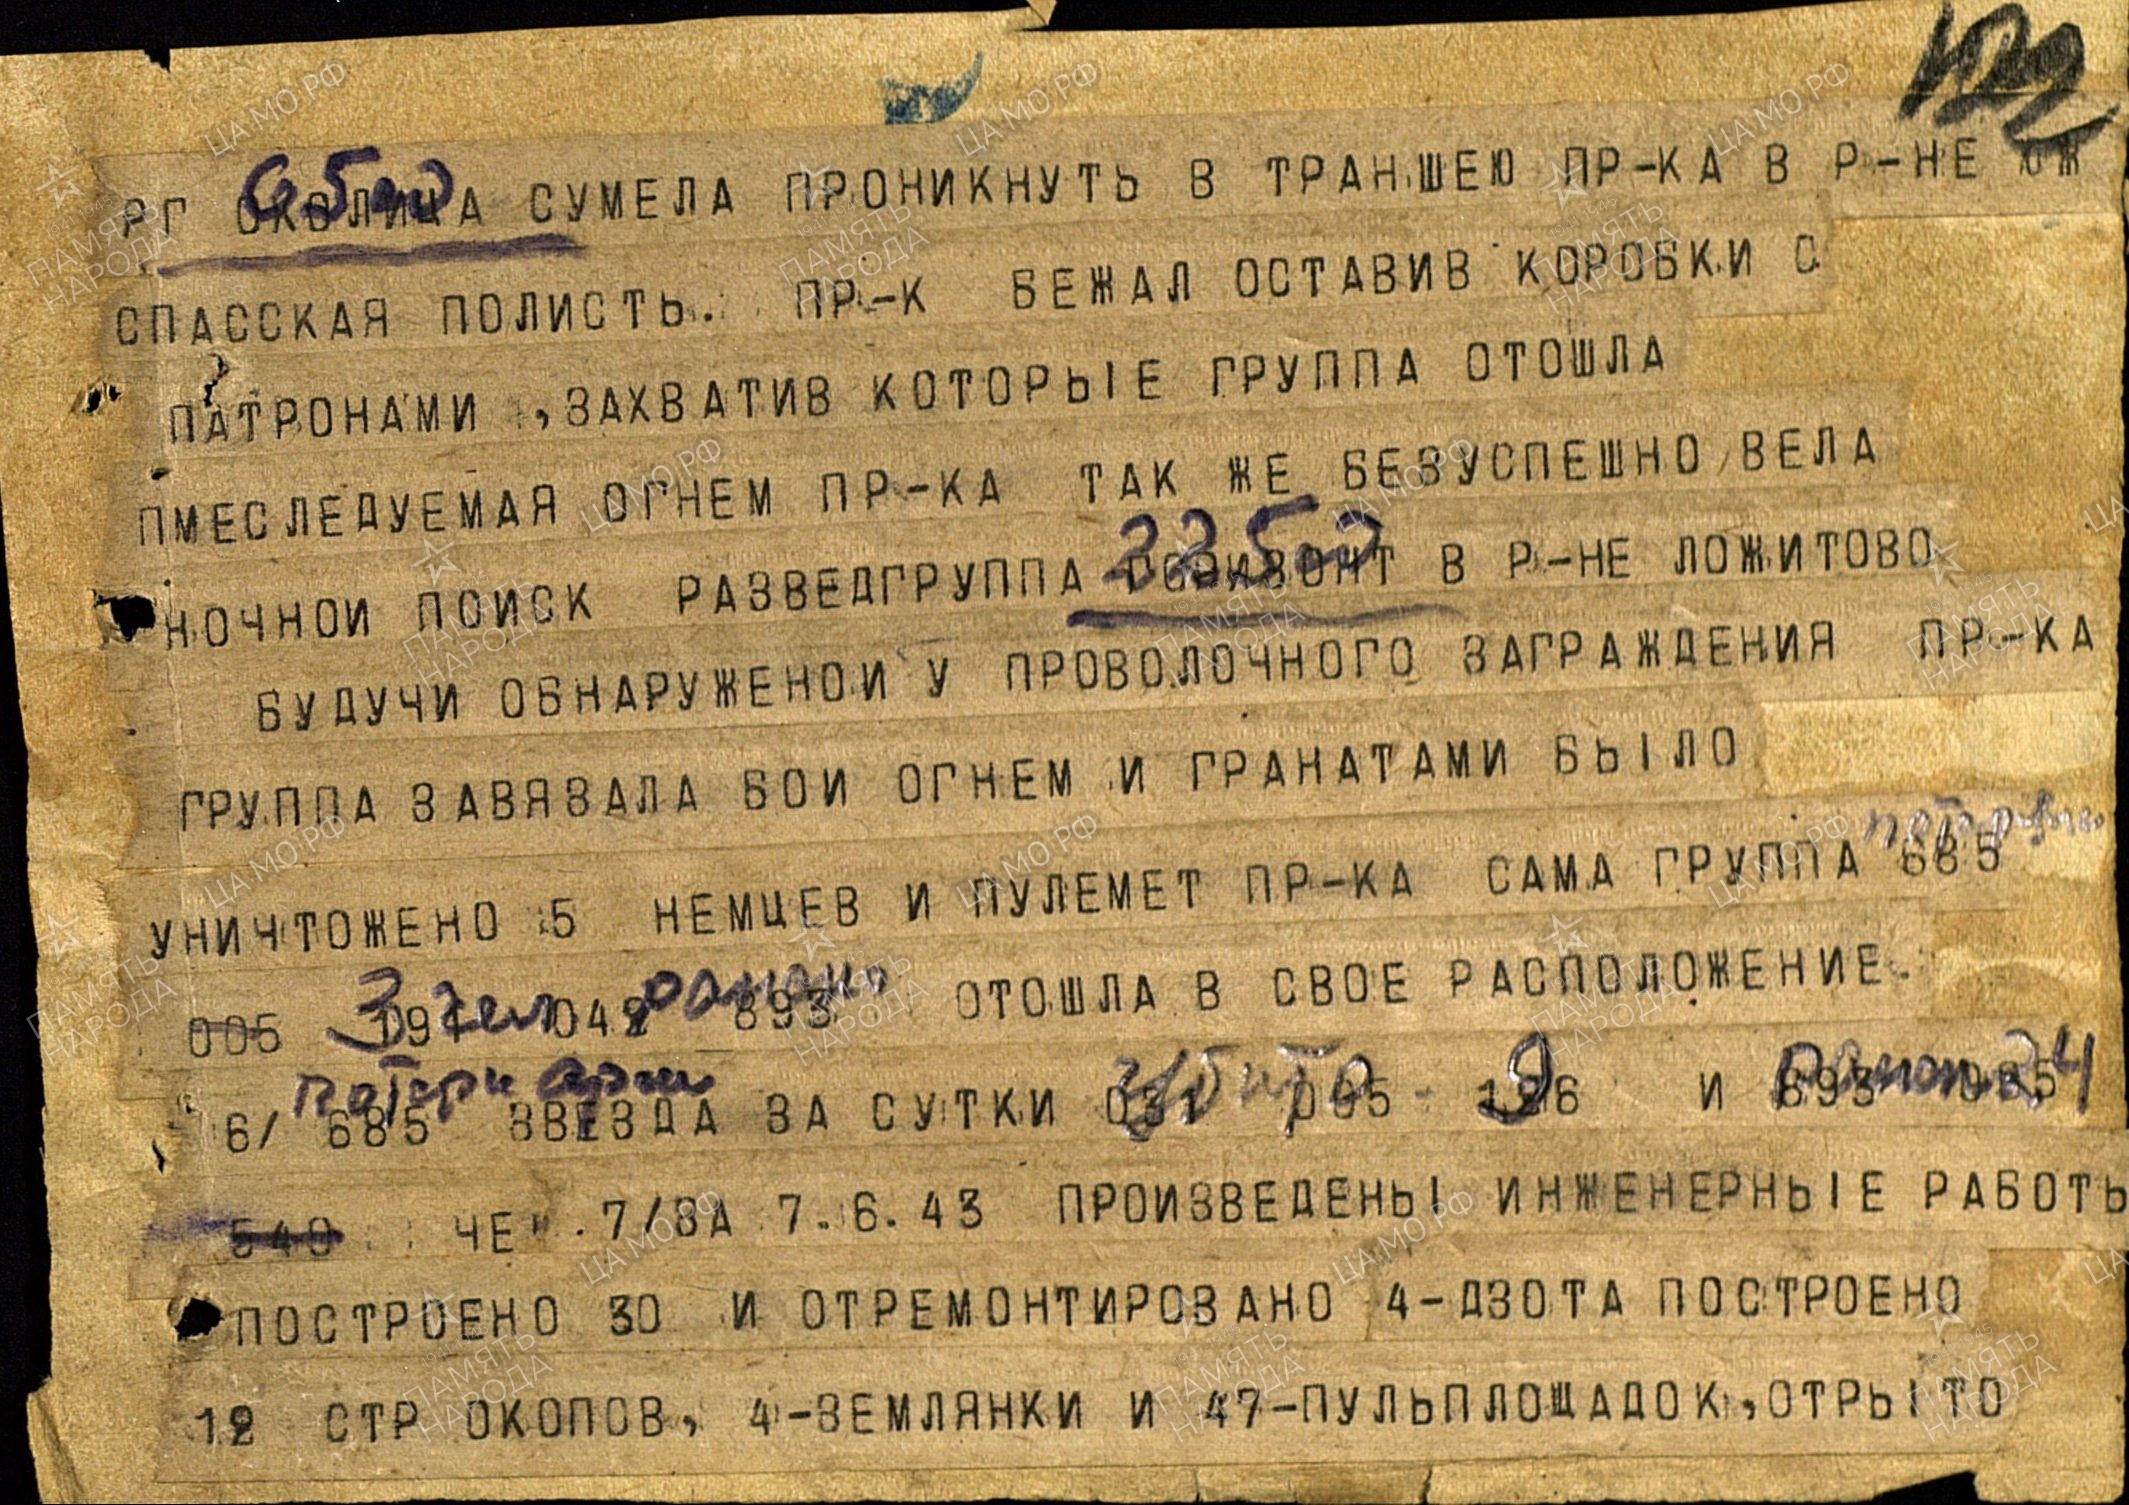 122
65 сд
РГ ОКОЛИЧА СУМЕЛА ПРОНИКНУТЬ В ТРАНШЕЮ ПР-КА В Р-НЕ ЮЖ
СПАССКАЯ ПОЛИСТЬ. ПР-К БЕЖАЛ ОСТАВИВ КОРОБКИ С
ПАТРОНАМИ ,ЗАХВАТИВ КОТОРЫЕ ГРУППА ОТОШЛА
ПМЕСЛЕДУЕМАЯ ОГНЕМ ПР-КА ТАК ЖЕ БЕЗУСПЕШНО ВЕЛА
225 сд
НОЧНОИ ПОИСК РАЗВЕДГРУППА ГОРИЗОНТ В Р-НЕ ЛОЖИТОВО
БУДУЧИ ОБНАРУЖЕНОИ У ПРОВОЛОЧНОГО ЗАГРАЖДЕНИЯ ПР-КА
ГРУППА ЗАВЯЗАЛА БОИ ОГНЕМ И ГРАНАТАМИ БЫЛО
потеряв
УНИЧТОЖЕНО 5 НЕМЦЕВ И ПУЛЕМЕТ ПР-КА САМА ГРУППА 685
3 чел ранен.
005 191 042 893 ОТОШЛА В СВОЕ РАСПОЛОЖЕНИЕ.
потери арм убито 9 ранен 24
6/ 685 ЗВЕЗДА ЗА СУТКИ 031 005 186 И 893 035
549 ЧЕ" .7/ЗА 7.6.43 ПРОИЗВЕДЕНЫ ИНЖЕНЕРНЫЕ РАБОТЬ
ПОСТРОЕНО 30 И ОТРЕМОНТИРОВАНО 4-ДЗОТА ПОСТРОЕНО
12 СТР ОКОПОВ, 4-ЗЕМЛЯНКИ И 47-ПУЛЬПЛОЩАДОК,ОТРЫТО